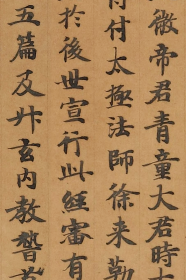 微帝君青童大君時
付太極法師徐来勒
於後世宣行此經審有
五篇及廾玄内教誓